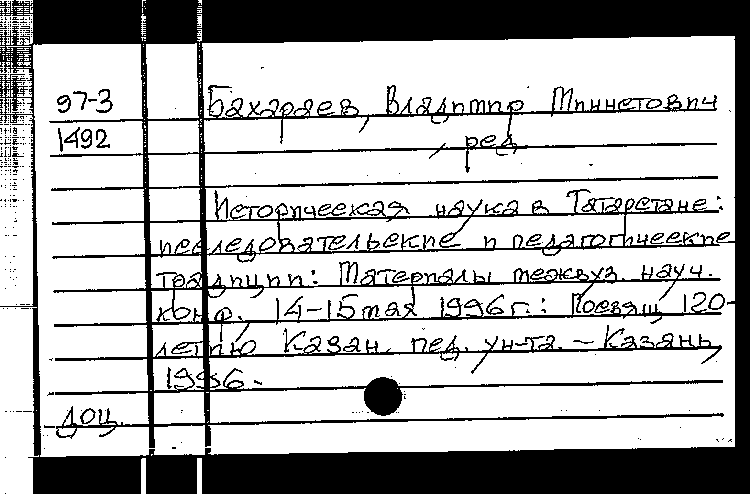 97-3 Бахараев, Владимир Миннетович
1492 , ред
Историческая наука в Татарстане:
исследовательские и педагогические
традиции: Материалы межвуз. науч.
конф., 14-15 мая 1996 г.: Посвящ. 120-
летию Казан. пед. ун-та. - Казань,
1996.
доц.